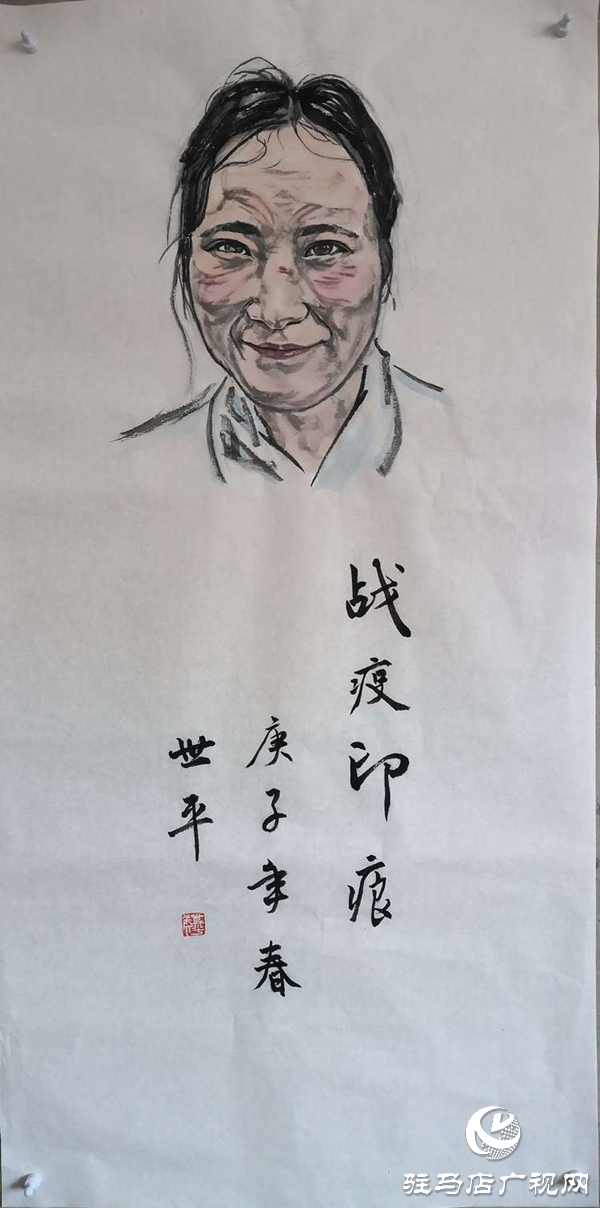 战疫印痕
庚子年春
世平
驻马店广视网